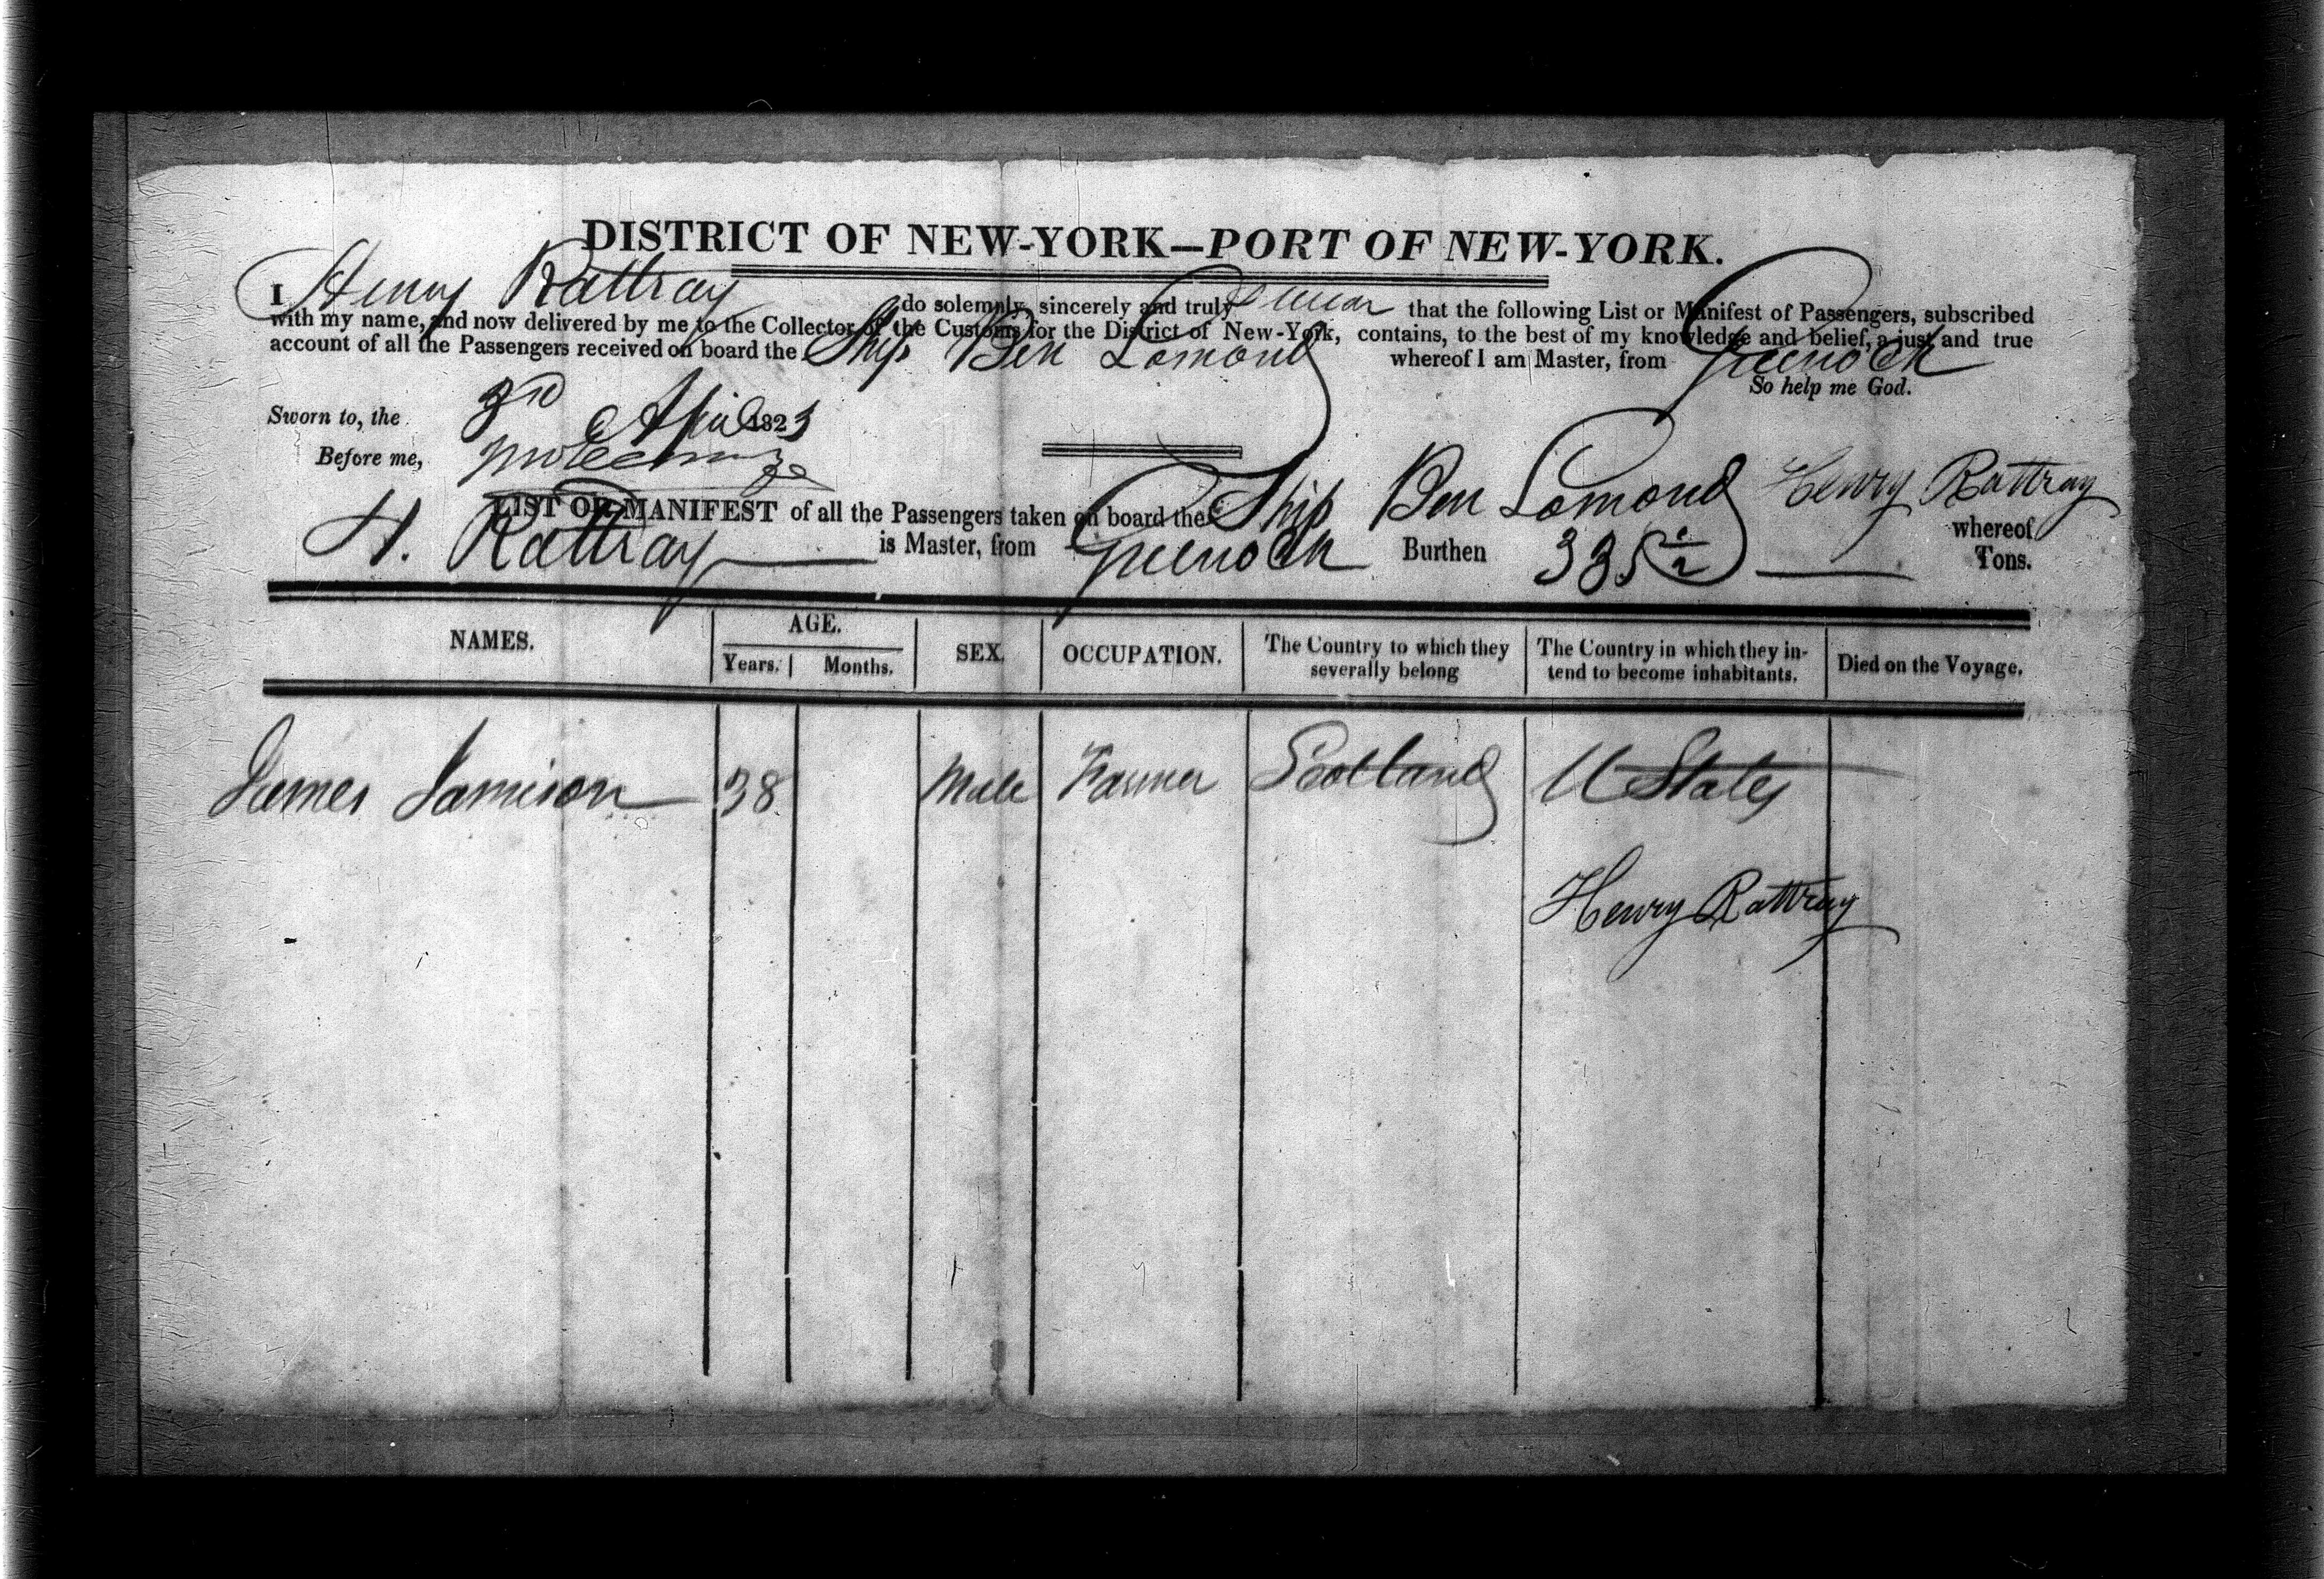 DISTRICT OF NEW-YORK—PORT OF NEW-YORK.
I Henry Rattray do solemnly, sincerely and truly swear that the following List or Manifest of Passengers, subscribed
with my name, and now delivered by me to the Collector of the Customs for the District of New-York, contains, to the best of my knowledge and belief, a just and true
account of all the Passengers received on board the Ship Ben Lomond whereof I am Master, from Greenock
So help me God.
Sworn to, the 3rd April 1823
Before me,
Henry Rattray
LIST OR MANIFEST of all the Passengers taken on board the Ship Ben Lomond whereof
H. Rattray is Master, from Greenock Burthen 335 1/2 Tons.
NAMES. AGE. Years. Months. SEX. OCCUPATION. The Country to which they severally belong The Country in which they intend to become inhabitants. Died on the Voyage.
James Jamison 38 Male Farmer Scotland U States
Henry Rattray